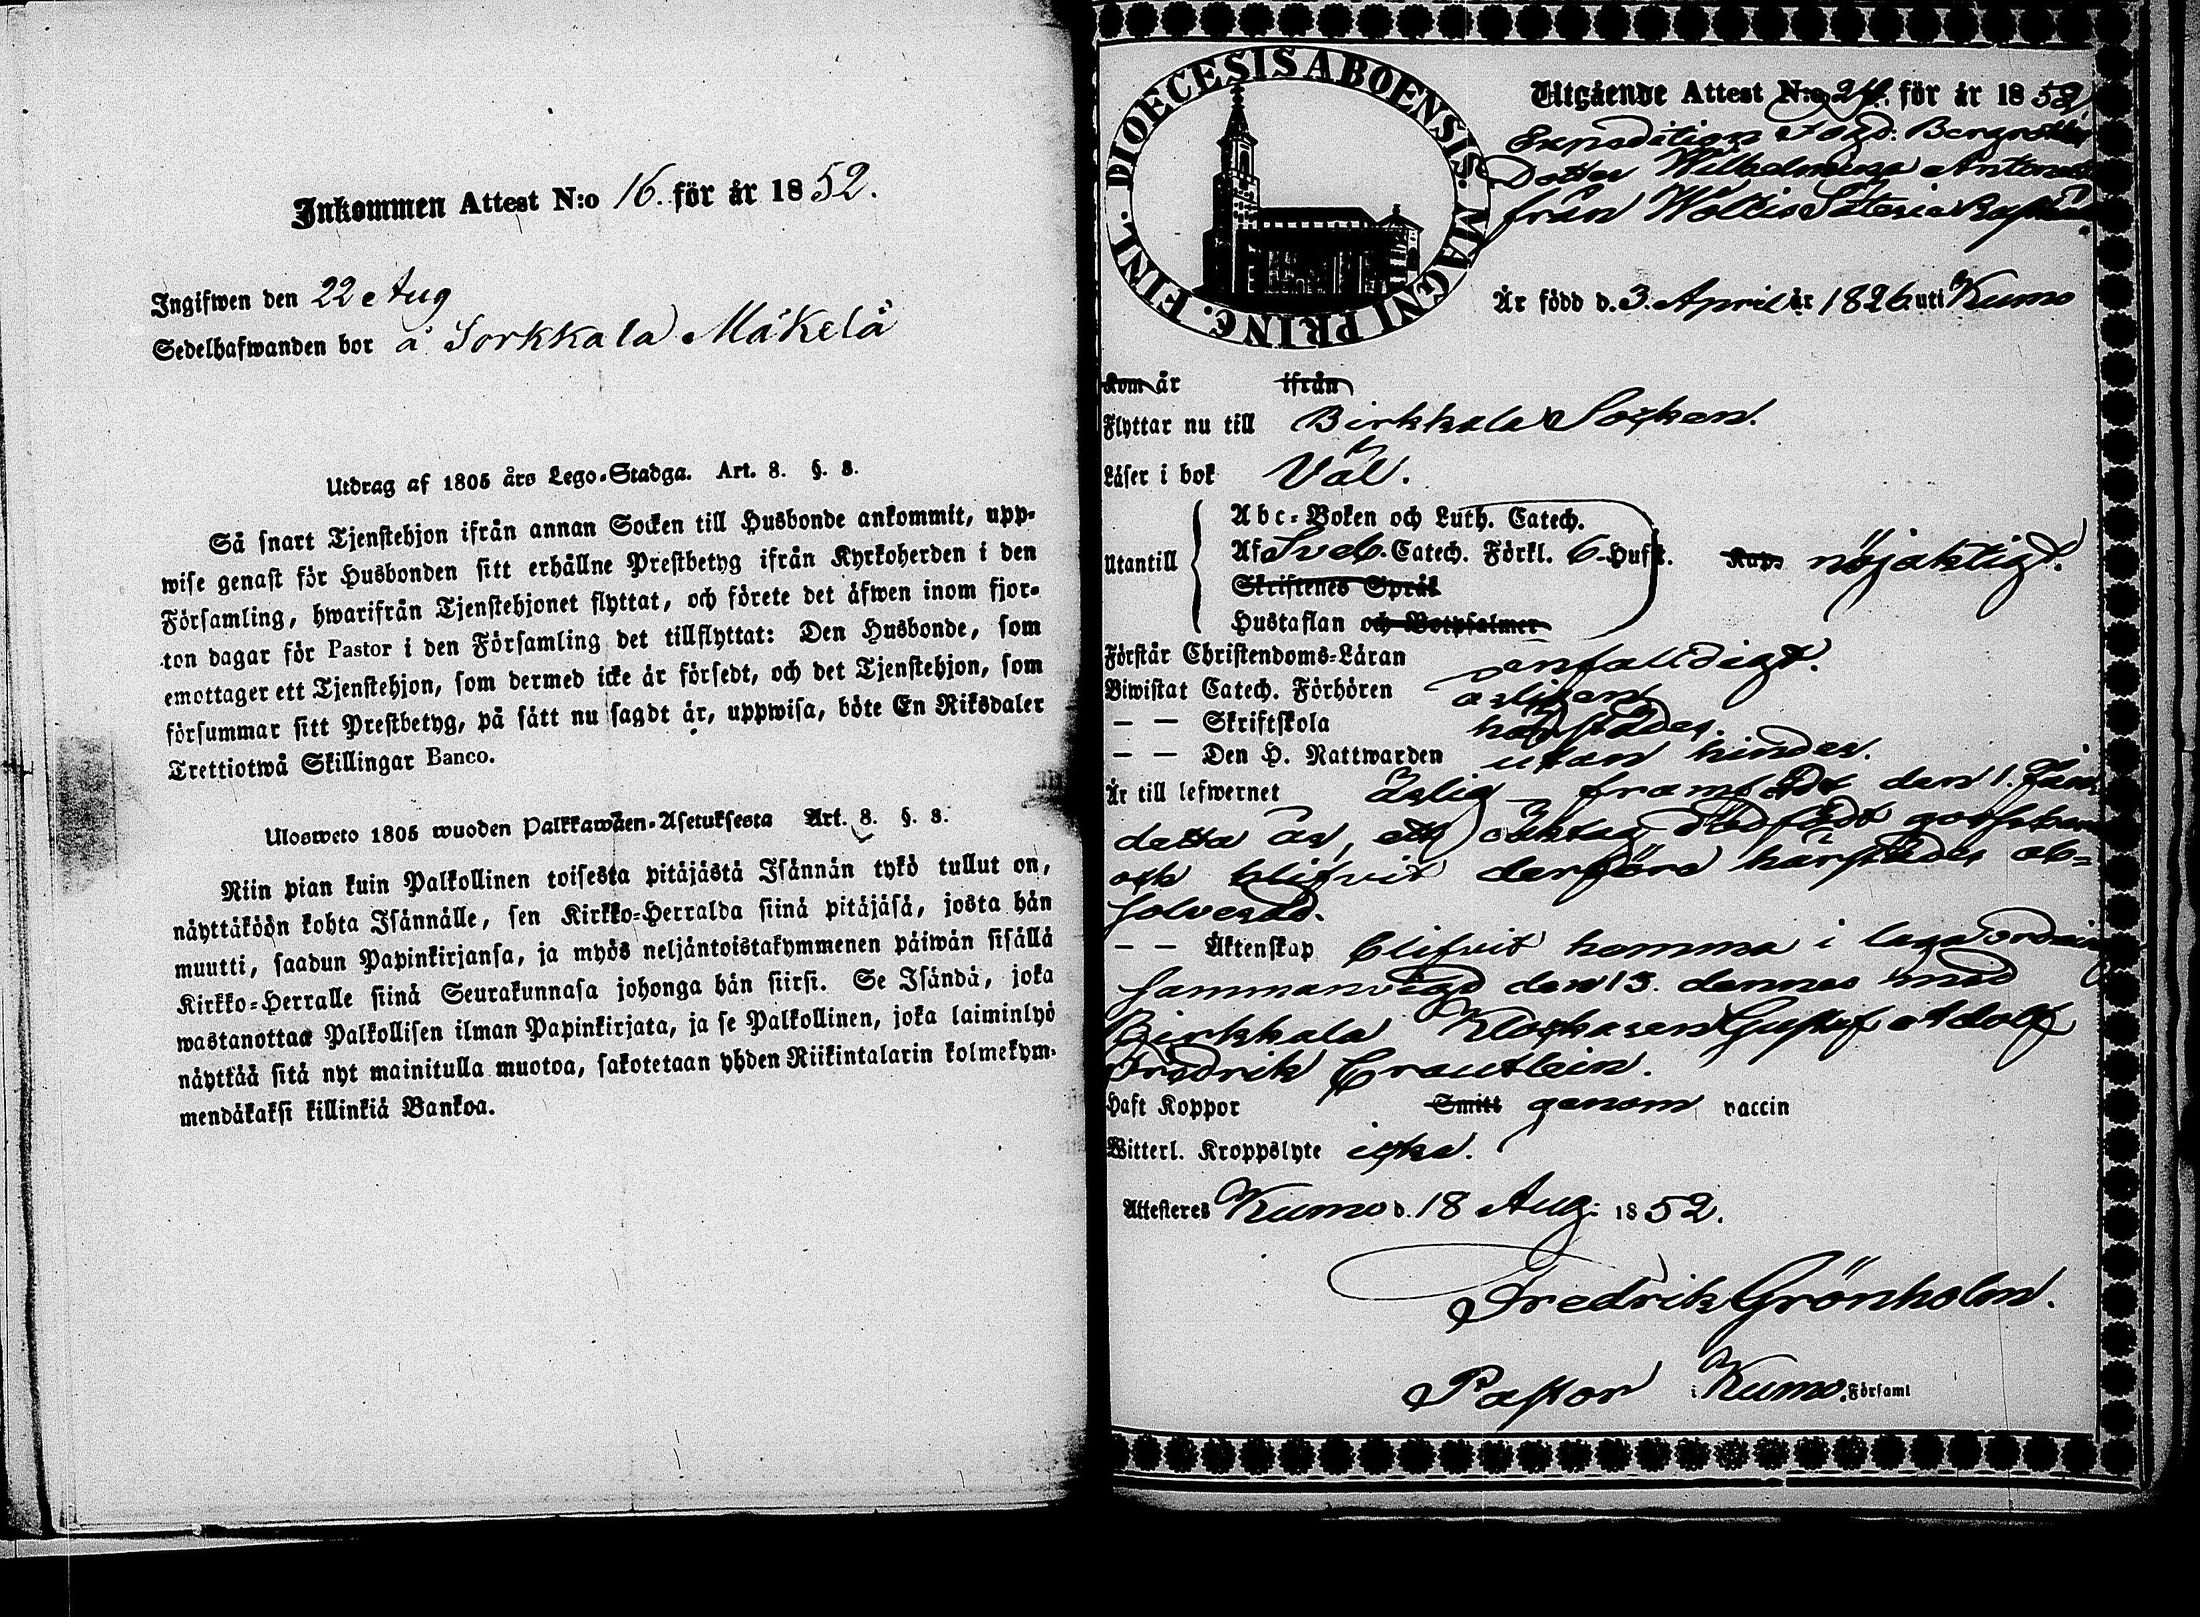 Inkommen Attest N:o 16. för år 1852.
Ingifwen den 22 Aug
Sedelhafwanden bor å Sorkkala Mäkelä
Utdrag af 1805 års Lego-Stadga. Art. 8. §. 8.
Så snart Tjenstehjon ifrån annan Socken till Husbonde ankommit, upp-
wise genast för Husbonden sitt erhållne Prestbetyg ifrån Kyrkoherden i den
Församling, hwarifrån Tjenstehjonet flyttat, och förete det äfwen inom fjor-
ton dagar för Pastor i den Församling det tillflyttat: Den Husbonde, som
emottager ett Tjenstehjon, som dermed icke är försedt, och det Tjenstehjon, som
försummar sitt Prestbetyg, på sätt nu sagdt är, uppwisa, böte En Riksdaler
Trettiotwå Skillingar Banco.
Ulosweto 1805 wuoden Palkkawäen-Asetuksesta Art. 8. §. 8.
Niin pian kuin Palkollinen toisesta pitäjästä Isännän tykö tullut on,
näyttäköön kohta Isännälle, sen Kirkko-Herralda siinä pitäjäsä, josta hän
muutti, saadun Papinkirjansa, ja myös neljäntoistakymmenen päiwän sisällä
Kirkko-Herralle siinä Seurakunnasa johonga hän siirsi. Se Isändä, joka
wastanottaa Palkollisen ilman Papinkirjata, ja se Palkollinen, joka laiminlyö
näyttää sitä nyt mainitulla muotoa, sakotetaan yhden Riikintalarin kolmekym-
mendäkaksi killinkiä Bankoa.
DIOECESIS ABOENSIS. MAGNI PRINC. FINL.
Utgående Attest N:o 24. för år 1852
Expedition Bergroths
Dotter Wilhelmina
från
Är född d. 3. April år 1826 uti Kumo
Kom år ifrån
Flyttar nu till Birkkala Socken.
Läser i bok Väl.
Utantill
Abc-Boken och Luth. Catech.
Af Sveb. Catech. Förkl. 6 Hufst. nöjaktigt.
Skriftenes Språk
Hustaflan och Botpsalmer
Förstår Christendoms-Läran enfalldigt.
Biwistat Catech. Förhören årligen
— — Skriftskola härstädes.
— — Den H. Nattwarden utan hinder.
Är till lefwernet ärlig — framfödt den 1.
detta år, ett oäkta, dödfödt gossebarn
och blifvit derföre härstädes ab-
solverad.
— — Äktenskap blifvit hemma i laga ordning
sammanvigd den 15. dennes med
Birkkala Klockaren Gustaf Adolf
Fredrik
Haft Koppor Smitt genom vaccin
Witterl. Kroppslyte icke.
Attesteres Kumo d. 18 Aug: 1852.
Fredrik Grönholm.
Pastor i Kumo Församl